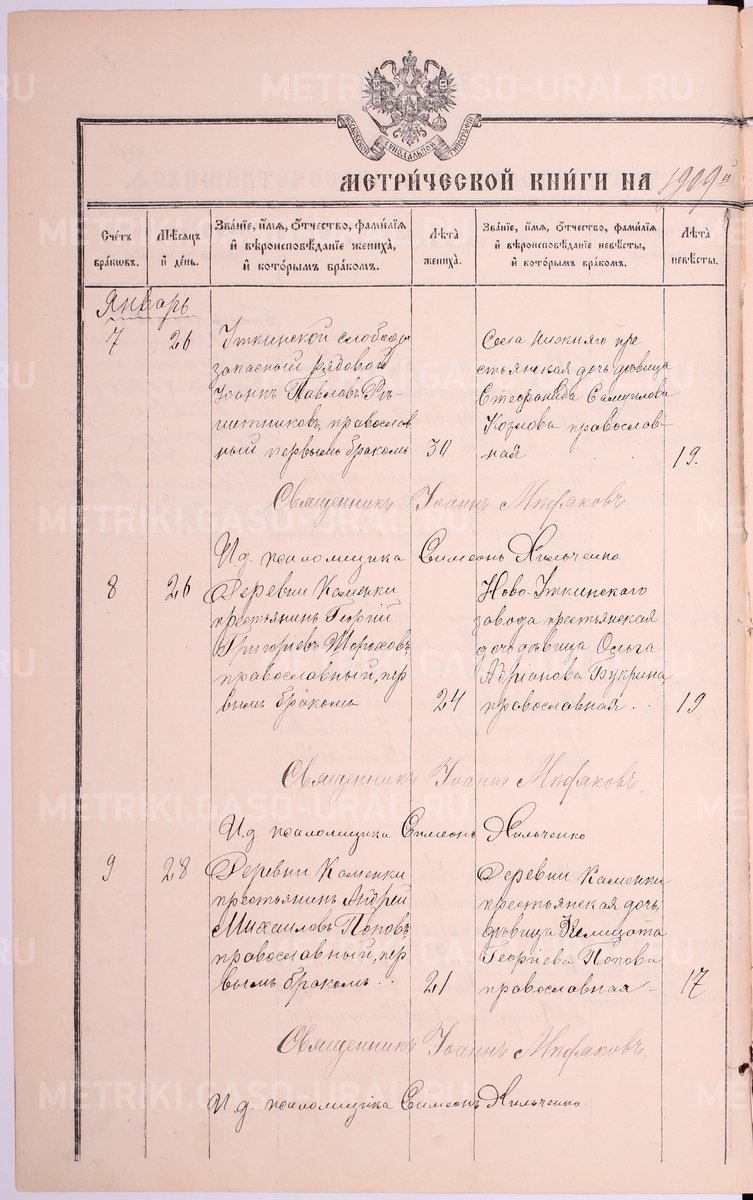 МОСКОВСКОЙ СѴНОДАЛЬНОЙ ТИПОГРАФІИ
МЕТРИ́ЧЕСКОЙ КНИ́ГИ НА 1909 й
Сче́тъ бра́ковъ.
Мѣ́сяцъ и҆ де́нь.
Зва́ніе, и҆́мя, ѻ҆́тчество, фами́лія и҆ вѣроисповѣ́даніе жениха̀, и҆ кото́рымъ бра́комъ.
Лѣ́та жениха̀.
Зва́ніе, и҆́мя, ѻ҆́тчество, фами́лія и҆ вѣроисповѣ́даніе невѣ́сты, и҆ кото́рымъ бра́комъ.
Лѣ́та невѣ́сты.
Январь
7 26
Уткинской слободы
запасный рядовой
Іоаннъ Павловъ
православ
ный первымъ бракомъ
30
Села Нижняго кре
стьянская дочь дѣвица
Стефанида Самуилова
Козлова православ-
ная
19.
Священникъ Іоаннъ
И. д. псаломщика Симеонъ Хильченко
8 26
Деревни Каменки
крестьянинъ Георгій
Григорьевъ Шороховъ,
православный, пер
вымъ бракомъ
24
Ново-Уткинскаго
завода крестьянская
дочь дѣвица Ольга
Адріанова Букрина,
православная.
19
Священникъ Іоаннъ
И. д. псаломщика Симеонъ Хильченко
9 28
Деревни Каменки
крестьянинъ Андрей
Михаиловъ Поповъ,
православный, пер
вымъ бракомъ.
21
Деревни Каменки
крестьянская дочь,
дѣвица
Георгіева Попова
православная
17
Священникъ Іоаннъ
И. д. псаломщика Симеонъ Хильченко.
METRIKI.GASO-URAL.RU